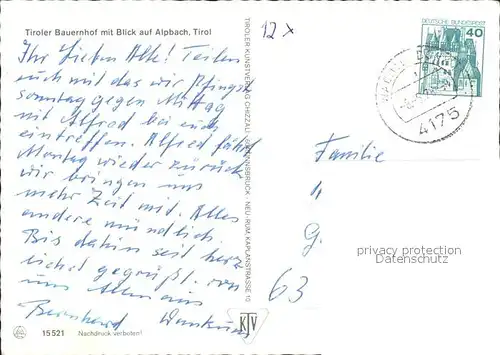 Tiroler Bauernhof mit Blick auf Alpbach, Tirol
Ihr Lieben Alle! Teilen
euch mit das wir Pfingst
sonntag gegen Mittag
mit Alfred bei euch
eintreffen. Alfred fährt
Montag wieder zurück
wir bringen uns
mehr Zeit mit. Alles
andere mündlich.
Bis dahin seid herz
lichst gegrüßt von
uns Allen
Bernhard
15521 Nachdruck verboten!
TIROLER KUNSTVERLAG CHIZZALI INNSBRUCK - NEU-RUM, KAPLANSTRASSE 10
KTV
12 x
DEUTSCHE BUNDESPOST
40
4175
Familie
G.
63
privacy protection
Datenschutz